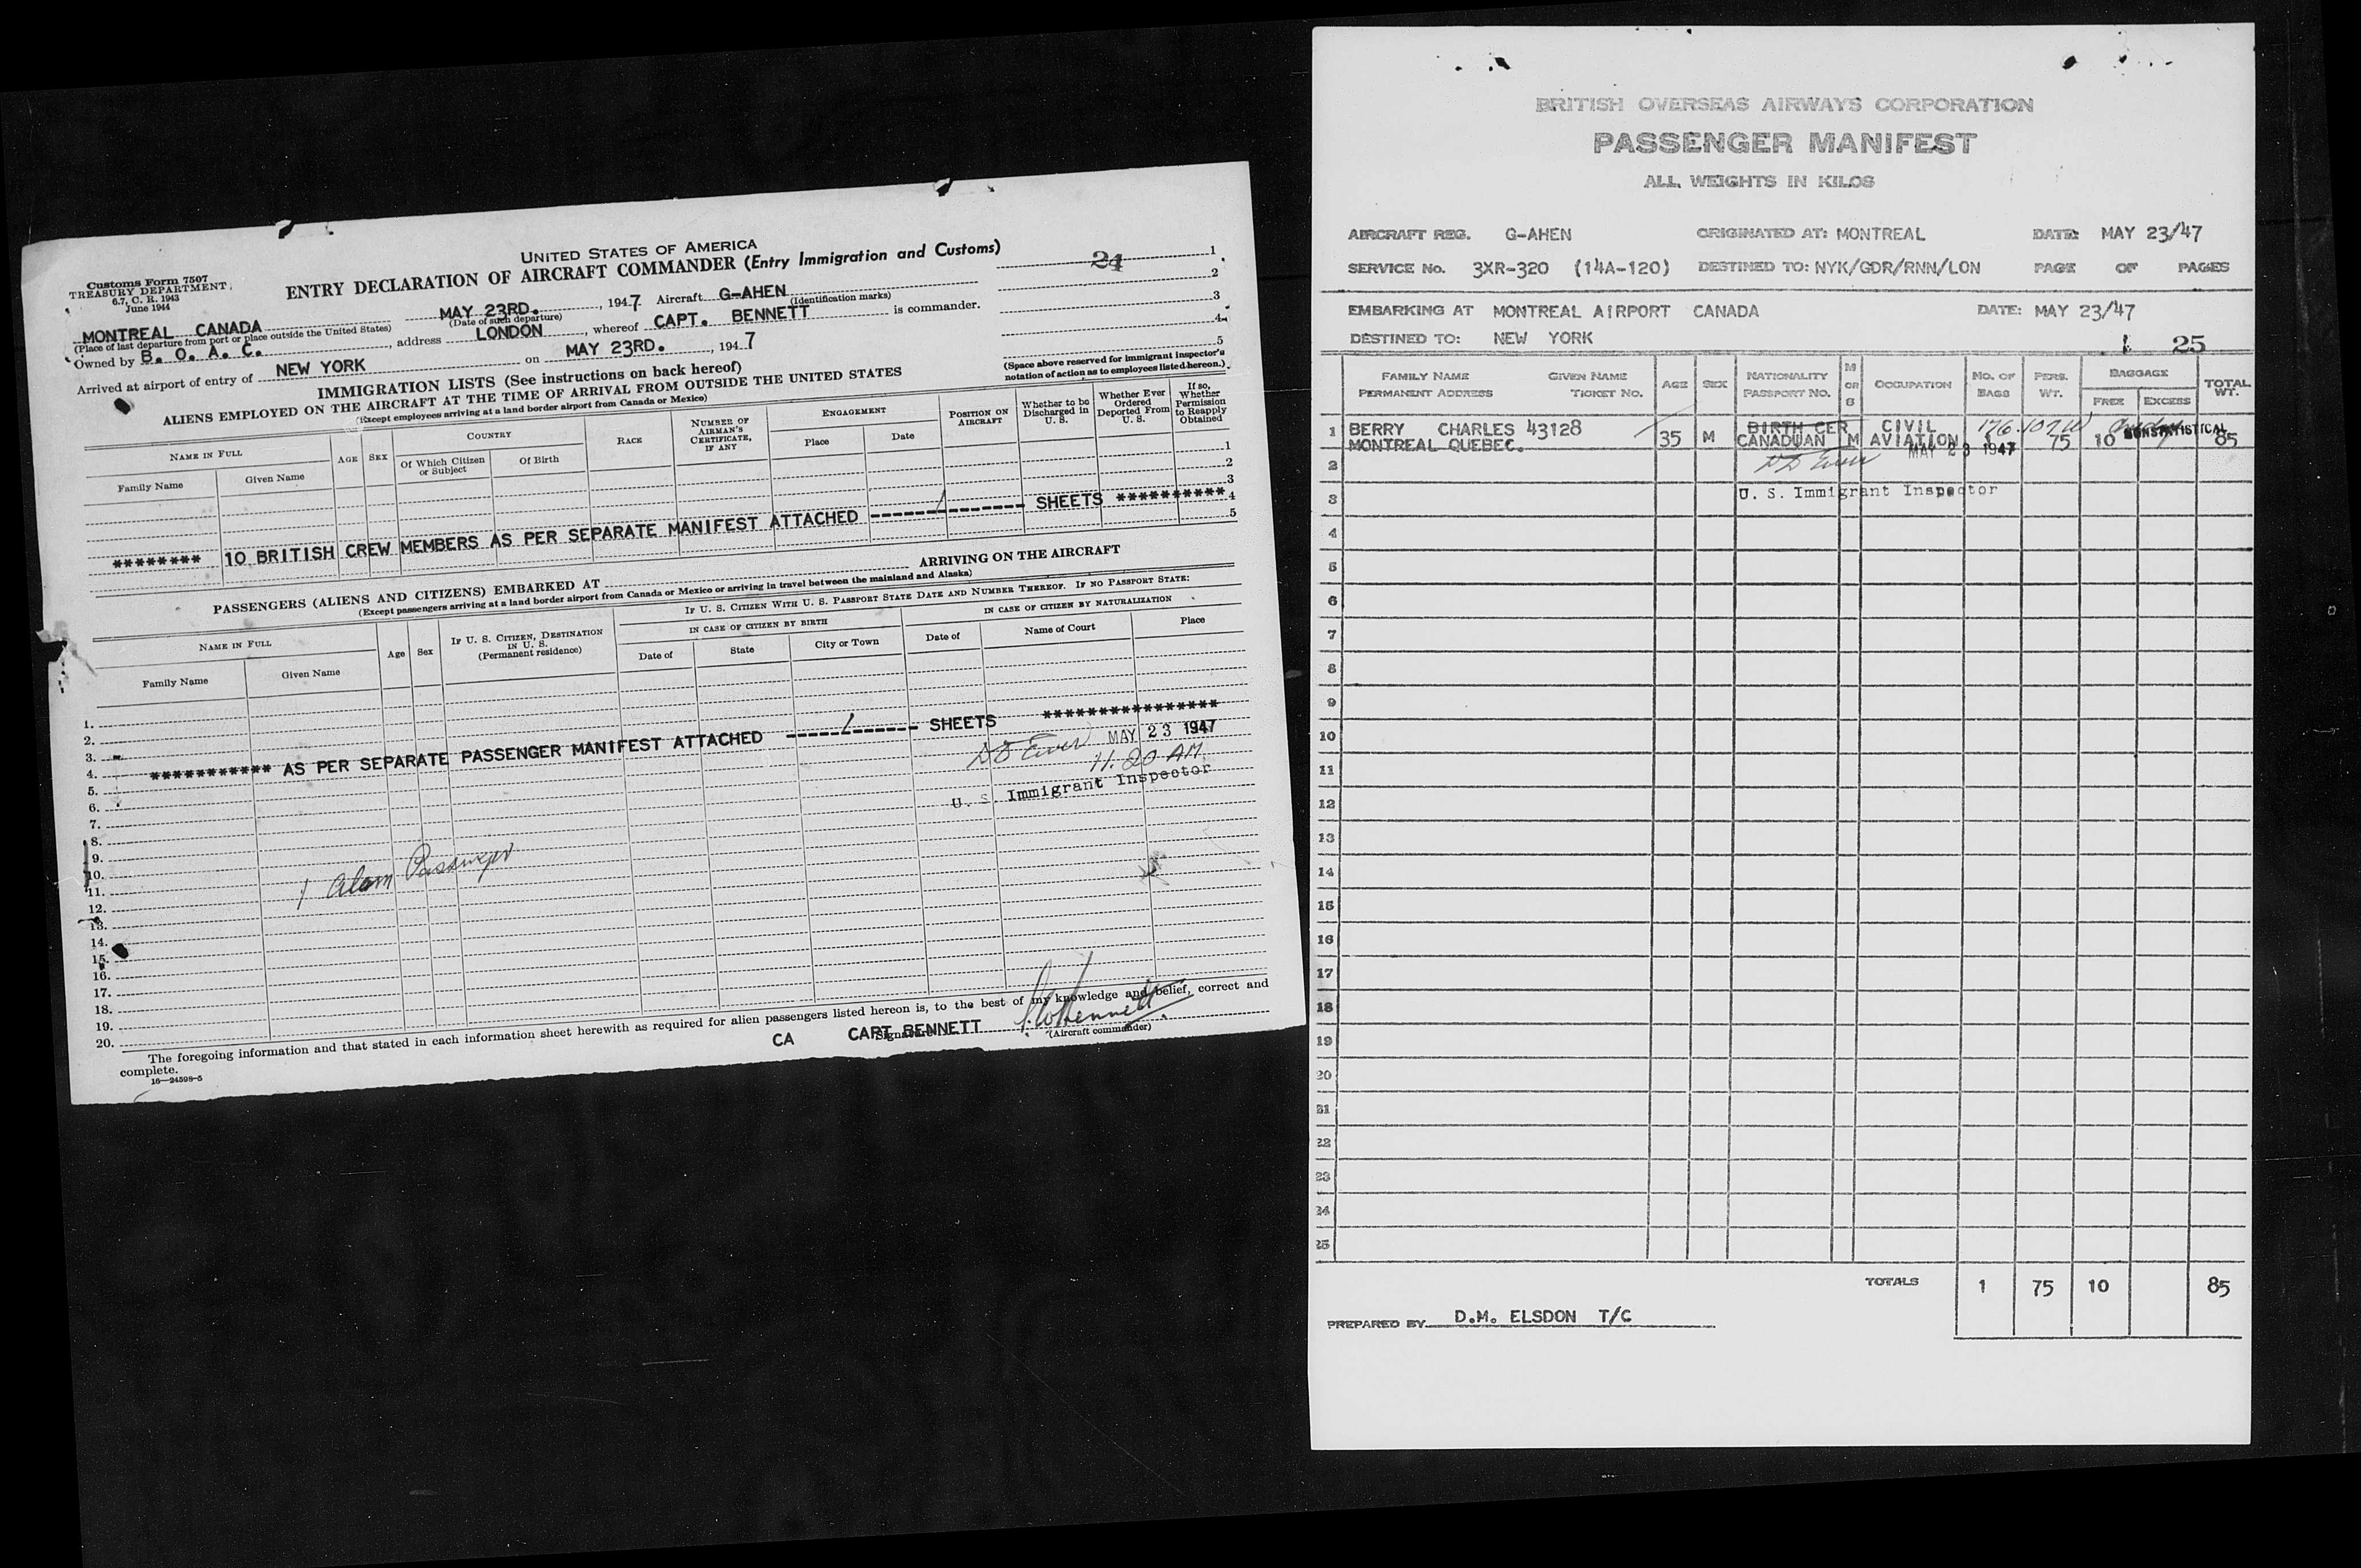 UNITED STATES OF AMERICA
ENTRY DECLARATION OF AIRCRAFT COMMANDER (Entry Immigration and Customs)
Customs Form 7507
TREASURY DEPARTMENT
6.7, C. R. 1943
June 1944
24
1
2
3
4
5
MONTREAL CANADA MAY 23RD. , 1947 Aircraft G-AHEN
(Place of last departure from port or place outside the United States) (Date of such departure) (Identification marks)
Owned by B. O. A. C. , address LONDON , whereof CAPT. BENNETT is commander.
Arrived at airport of entry of NEW YORK on MAY 23RD. , 1947
(Space above reserved for immigrant inspector's notation of action as to employees listed hereon.)
IMMIGRATION LISTS (See instructions on back hereof)
ALIENS EMPLOYED ON THE AIRCRAFT AT THE TIME OF ARRIVAL FROM OUTSIDE THE UNITED STATES
(Except employees arriving at a land border airport from Canada or Mexico)
NAME IN FULL AGE SEX COUNTRY RACE NUMBER OF AIRMAN'S CERTIFICATE, IF ANY ENGAGEMENT POSITION ON AIRCRAFT Whether to be Discharged in U. S. Whether Ever Ordered Deported From U. S. If so, Whether Permission to Reapply Obtained
Family Name Given Name Of Which Citizen or Subject Of Birth Place Date
1
2
3
******** 10 BRITISH CREW MEMBERS AS PER SEPARATE MANIFEST ATTACHED ------/------- SHEETS ********** 4
5
PASSENGERS (ALIENS AND CITIZENS) EMBARKED AT ARRIVING ON THE AIRCRAFT
(Except passengers arriving at a land border airport from Canada or Mexico or arriving in travel between the mainland and Alaska)
NAME IN FULL Age Sex IF U. S. CITIZEN, DESTINATION IN U. S. (Permanent residence) IF U. S. CITIZEN WITH U. S. PASSPORT STATE DATE AND NUMBER THEREOF. IF NO PASSPORT STATE:
IN CASE OF CITIZEN BY BIRTH IN CASE OF CITIZEN BY NATURALIZATION
Family Name Given Name Date of State City or Town Date of Name of Court Place
1.
2.
3.
4. *********** AS PER SEPARATE PASSENGER MANIFEST ATTACHED -----/------ SHEETS ****************
5. MAY 23 1947
6. 11.20 AM
7. U. S. Immigrant Inspector
8.
9.
10.
11. 1 Alien Passenger
12.
13.
14.
15.
16.
17.
18.
19.
20.
The foregoing information and that stated in each information sheet herewith as required for alien passengers listed hereon is, to the best of my knowledge and belief, correct and
complete.
CA CAPT BENNETT
Signature
(Aircraft commander)
16—24598-5
BRITISH OVERSEAS AIRWAYS CORPORATION
PASSENGER MANIFEST
ALL WEIGHTS IN KILOS
AIRCRAFT REG. G-AHEN ORIGINATED AT: MONTREAL DATE: MAY 23/47
SERVICE No. 3XR-320 (14A-120) DESTINED TO: NYK/GDR/RNN/LON PAGE OF PAGES
EMBARKING AT MONTREAL AIRPORT CANADA DATE: MAY 23/47
DESTINED TO: NEW YORK
25
FAMILY NAME GIVEN NAME AGE SEX NATIONALITY M OR S OCCUPATION No. OF BAGS PERS. WT. BAGGAGE TOTAL WT.
PERMANENT ADDRESS TICKET No. PASSPORT No. FREE EXCESS
1 BERRY CHARLES 43128 35 M BIRTH CER CIVIL
MONTREAL QUEBEC. CANADIAN M AVIATION 1 75 10 NONSTATISTICAL 85
MAY 23 1947
2
3 U. S. Immigrant Inspector
4
5
6
7
8
9
10
11
12
13
14
15
16
17
18
19
20
21
22
23
24
25
TOTALS 1 75 10 85
PREPARED BY D.M. ELSDON T/C